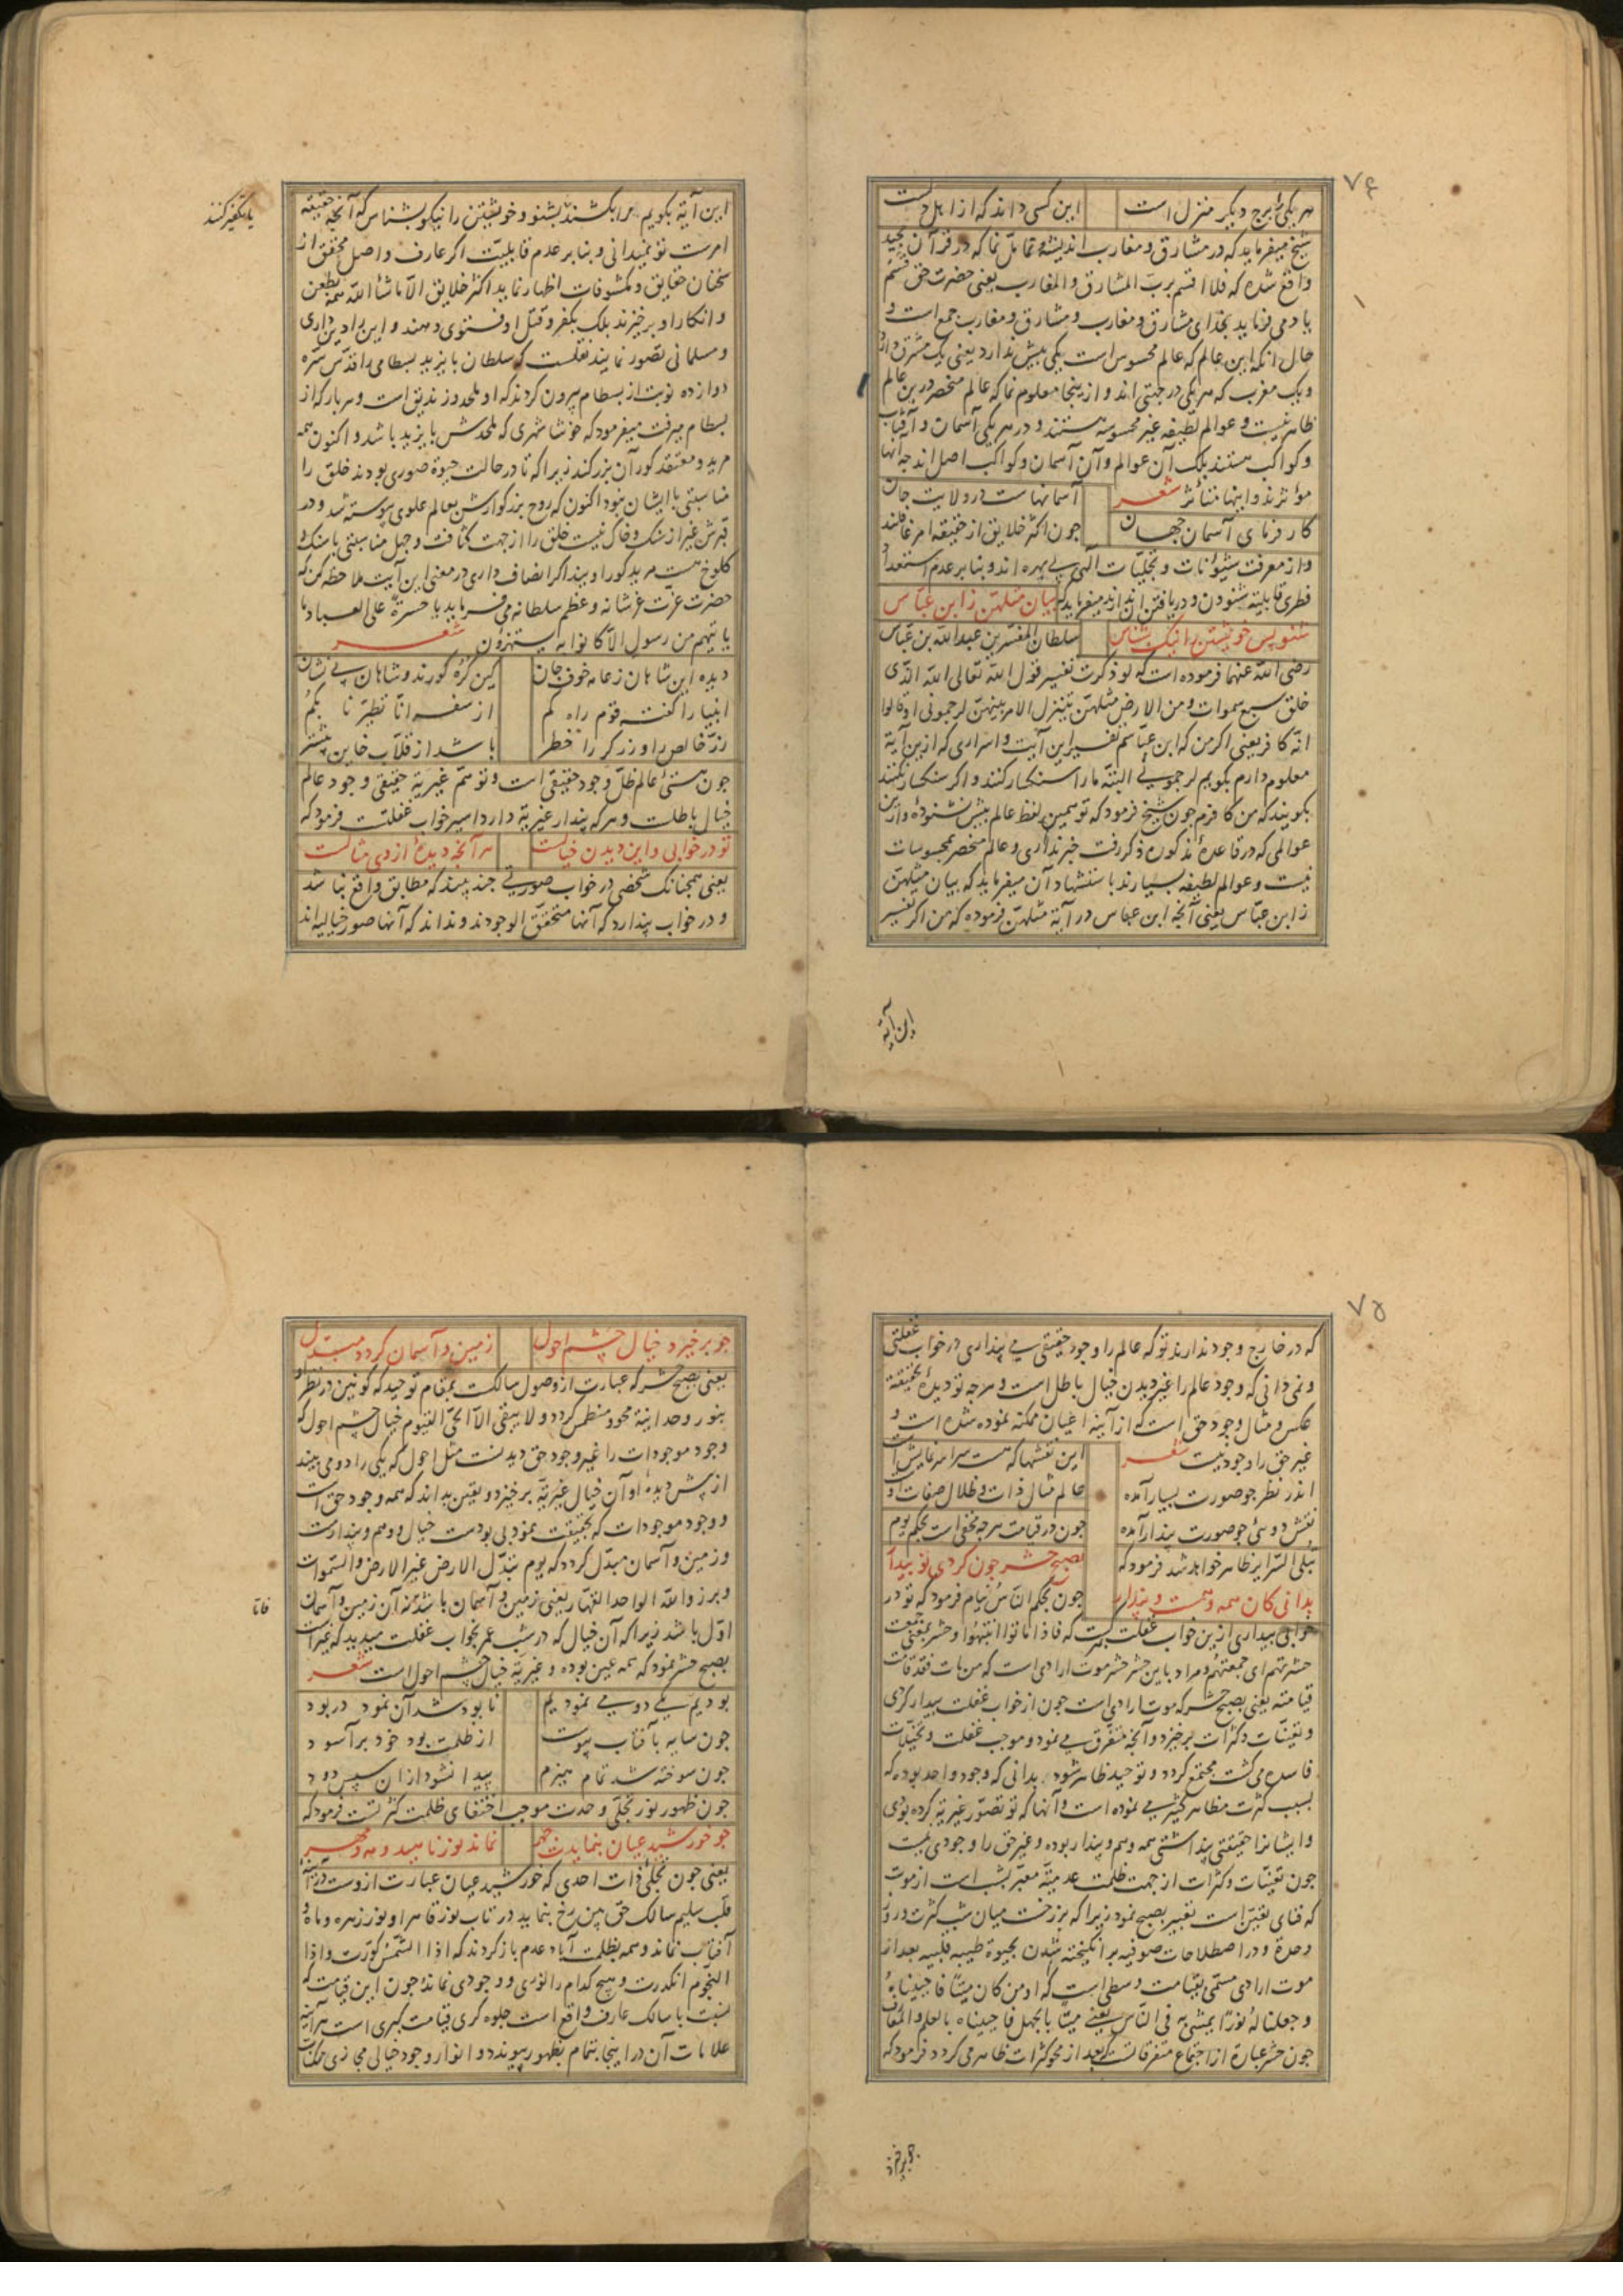 ۷۴
هر یکی را برج دیگر منزل است این کسی داند که از اهل دلست
شیخ میفرماید که در مشارق و مغارب اندیشه و تأمل نما که در قرآن مجید
واقع شده که فلا اقسم برب المشارق و المغارب یعنی حضرت حق قسم
یاد می فرماید بخدای مشارق و مغارب و مشارق و مغارب جمع است و
حال آنکه این عالم که عالم محسوس است یکی بیش ندارد یعنی یک مشرق دارد
و یک مغرب که هر یکی در جهتی اند و از ینجا معلوم نما که عالم منحصر درین عالم
ظاهر نیست و عوالم لطیفه غیر محسوسه هستند و در هر یکی آسمان و آفتاب
و کواکب هستند بلک آن عوالم و آن آسمان و کواکب اصل اند چه آنها
مؤثرند و اینها متأثر شعر آسمانهاست در ولایت جان
کارفرمای آسمان جهان جون اکثر خلایق از حقیقة امر غافلند
و از معرفت شئونات و تجلیّات الهی بی بهره اند و بنا بر عدم استعداد
فطری قابلیة شنودن و دریافتن آن ندارند میفرماید که بیان مثلهن ز ابن عباس
شنو پس خویشتن را نیک بشناس سلطان المفسرین عبد الله بن عباس
رضی الله عنهما فرموده است که لو ذکرت تفسیر قول الله تعالی الله الذی
خلق سبع سموات و من الارض مثلهن یتنزل الامر بینهن لرجمونی او قالوا
انه کافر یعنی اکر من که ابن عباسم تفسیر این آیت و اسراری که ازین آیة
معلوم دارم بکویم لرجمونی البته مرا سنکسار کنند و اکر سنکسار نکنند
بکویند که من کافرم جون شیخ فرمود که تو همین لفظ عالم بیش نشنوده و ازین
عوالمی که در قاعدهٔ مذکوره ذکر رفت خبر نداری و عالم منحصر بمحسوسات
نیست و عوالم لطیفه بسیارند باستشهاد آن میفرماید که بیان مثلهن
ز ابن عباس یعنی آنچه ابن عباس در آیة مثلهن فرموده که من اکر تفسیر
این آیة
این آیة بکویم مرا بکشند بشنو و خویشتن را نیکو بشناس که آنچه حقیقة
یا تکفیر کنند
امرست تو نمیدانی و بنا بر عدم قابلیّت اکر عارف و اصل محقق از
سخنان حقایق و مکشوفات اظهار نماید اکثر خلایق الا ما شاء الله همه بطعن
و انکار او بر خیزند بلک بکفر و قتل او فتوی دهند و این را دین داری
و مسلمانی تصور نمایند نقلست که سلطان بایزید بسطامی را قدّس سرّه
دوازده نوبت از بسطام بیرون کردند که او ملحد و زندیق است و هر بار که از
بسطام میرفت میفرمود که خوشا شهری که ملحدش بایزید باشد و اکنون همه
مرید و معتقد کور آن بزرکند زیرا که تا در حالت حیوة صوری بودند خلق را
مناسبتی با ایشان نبود اکنون که روح بزرکوارش بعالم علوی پیوسته شد و در
قبرش غیر از سنک و خاک نیست خلق را از جهت کثافت و جهل مناسبتی با سنک و
کلوخ هست مرید کور او یند اکر انصاف داری در معنی این آیت ملاحظه کن که
حضرت عزّت عزّ شانه و عظم سلطانه می فرماید یا حسرة علی العباد ما
یا تیهم من رسول الا کانوا به یستهزؤن شعر
دیده این شاهان ز عامه خوف جان کین کره کورند و شاهان بی نشان
انبیا را کفته قوم راه کم از سفه انّا تطیّرنا بکم
زرّ خالص را و زرکر را خطر باشد از قلاب خاین بیشتر
جون هستی عالم ظلّ وجود حقیقی است و توهّم غیریة حقیقی وجود عالم
خیال باطلست و هر که پندار غیریة دارد اسیر خواب غفلت فرمود که
تو در خوابی و این دیدن خیالست هر آنچه دیدهٔ از وی مثالست
یعنی همچنانک شخصی در خواب صورتی چند بیند که مطابق واقع نباشد
و در خواب پندارد که آنها متحقق الوجودند و نداند که آنها صور خیالیه اند
۷۵
که در خارج وجود ندارند تو که عالم را وجود حقیقی می پنداری در خواب غفلتی
و نمی دانی که وجود عالم را غیر دیدن خیال باطل است و هر چه تو دیدهٔ بحقیقة
عکس و مثال وجود حق است که از آینه اعیان ممکنه نموده شده است و
غیر حق را وجود نیست شعر این نقشها که هست سراسر نمایش است
اندر نظر جو صورت بسیار آمده عالم مثال ذات و ظلال صفات اوست
نقش دوئی جو صورت پندار آمده جون در قیامت هر چه مخفی است بحکم یوم
تبلی السّرایر ظاهر خواهد شد فرمود که بصبح حشر جون کردی تو بیدار
بدانی کان همه وهمست و پندار جون بحکم النّاس نیام فرمود که تو در
خوابی بیداری ازین خواب غفلت که فاذا ماتوا انتبهوا و حشر بمعنی جمعست
حشرتهم ای جمعتهم و مراد باین حشر حشر موت ارادی است که من مات فقد قامت
قیامته یعنی بصبح حشر که موت ارادی است جون از خواب غفلت بیدار کردی
و تعینات و کثرات برخیزد و آنچه متفرق می نمود و موجب غفلت و تخیّلات
فاسده می کشت مجتمع کردد و توحید ظاهر شود بدانی که وجود واحد بوده که
بسبب کثرت مظاهر کثیر می نموده است و آنها که تو تصوّر غیریة کرده بودی
و ایشانرا حقیقتی پنداشتی همه وهم و پندار بوده و غیر حق را وجودی نیست
جون تعینات و کثرات از جهت ظلمت عدمیة معبّر بشب است از موت
که فنای تعیّن است تعبیر بصبح نمود زیرا که برزخست میان شب کثرت و روز
وحدة و در اصطلاحات صوفیه بر انکیخته شدن بحیوة طیبه قلبیه بعد از
موت ارادی مسمّی بقیامت وسطی است که او من کان میتا فاحییناه
و جعلنا له نورا یمشی به فی الناس یعنی میتا بالجهل فاحییناه بالعلم و المعارف
جون حشر عبارة از اجتماع متفرقاتست که بعد از محو کثرات ظاهر می کردد فرمود که
جو برخیزد
جو برخیزد خیال چشم احول زمین و آسمان کردد مبدّل
یعنی بصبح حشر که عبارت از وصول سالکست بمقام توحید که کونین در نظر او
بنور وحدانیة محو و منطمس کردد و لا یبقی الا الحیّ القیّوم خیال چشم احول که
وجود موجودات را غیر وجود حق دیدنست مثل احول که یکی را دو می بیند
از پیش دیدهٔ او آن خیال غیریّة برخیزد و یقین بداند که همه وجود حق است
و وجود موجودات که بحقیقت نمود بی بودست خیال و وهم و پندارست
و زمین و آسمان مبدّل کردد که یوم تبدّل الارض غیر الارض و السّموات
و برزوا لله الواحد القهّار یعنی زمین و آسمان باشد نه آن زمین و آسمان
اوّل باشد زیرا که آن خیال که در شب عمر بخواب غفلت میدید که غیر است
بصبح حشر نمود که همه عین بوده و غیریّة خیال چشم احول است شعر
بودیم یکی دو می نمودیم نابود شد آن نمود در بود
جون سایه بآفتاب پیوست از ظلمت بود خود برآسود
جون سوخته شد تمام هیزم پیدا نشود از آن سپس دود
جون ظهور نور تجلّی وحدت موجب اختفای ظلمت کثرتست فرمود که
جو خورشید عیان بنمایدت چهر نماند نور ناهید و مه و مهر
یعنی جون تجلّی ذات احدی که خورشید عیان عبارت ازوست در آینهٔ
قلب سلیم سالک حق بین رخ بنماید در تاب نور قاهر او نور زهره و ماه و
آفتاب نماند و همه بظلمت آباد عدم باز کردند که اذا الشّمس کوّرت و اذا
النّجوم انکدرت و هیچ کدام را نوری و وجودی نماند و جون این قیامت که
نسبت با سالک عارف واقع است جلوه کری قیامت کبری است هر آینه
علامات آن در اینجا بتمام بظهور پیوندد و انوار وجود خیالی مجازی ممکنات